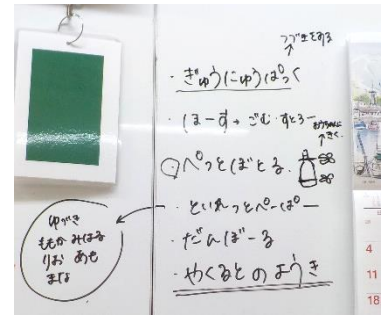 ・ぎゅうにゅうぱっく
・ほーす→ごむ・すとろー
ぺっとぼとる
・といれっとぺーぱー
・だんぼーる
・やくるとのようき
ゆづき
ももか みはる
りお あも
まな
4
11
18